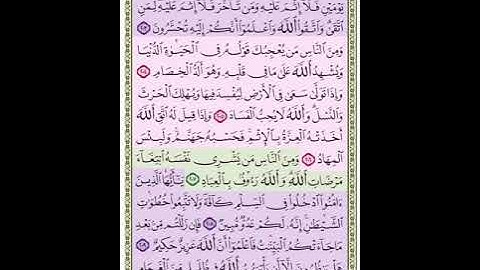 يَوْمَيْنِ فَلَآ إِثْمَ عَلَيْهِ وَمَن تَأَخَّرَ فَلَآ إِثْمَ عَلَيْهِ لِمَنِ
ٱتَّقَىٰ وَٱتَّقُوا۟ ٱللَّهَ وَٱعْلَمُوٓا۟ أَنَّكُمْ إِلَيْهِ تُحْشَرُونَ ٢٠٣
وَمِنَ ٱلنَّاسِ مَن يُعْجِبُكَ قَوْلُهُۥ فِى ٱلْحَيَوٰةِ ٱلدُّنْيَا
وَيُشْهِدُ ٱللَّهَ عَلَىٰ مَا فِى قَلْبِهِۦ وَهُوَ أَلَدُّ ٱلْخِصَامِ
٢٠٤ وَإِذَا تَوَلَّىٰ سَعَىٰ فِى ٱلْأَرْضِ لِيُفْسِدَ فِيهَا وَيُهْلِكَ ٱلْحَرْثَ
وَٱلنَّسْلَ وَٱللَّهُ لَا يُحِبُّ ٱلْفَسَادَ ٢٠٥ وَإِذَا قِيلَ لَهُ ٱتَّقِ ٱللَّهَ
أَخَذَتْهُ ٱلْعِزَّةُ بِٱلْإِثْمِ فَحَسْبُهُۥ جَهَنَّمُ وَلَبِئْسَ
ٱلْمِهَادُ ٢٠٦ وَمِنَ ٱلنَّاسِ مَن يَشْرِى نَفْسَهُ ٱبْتِغَآءَ
مَرْضَاتِ ٱللَّهِ وَٱللَّهُ رَءُوفٌۢ بِٱلْعِبَادِ ٢٠٧ يَٰٓأَيُّهَا ٱلَّذِينَ
ءَامَنُوا۟ ٱدْخُلُوا۟ فِى ٱلسِّلْمِ كَآفَّةً وَلَا تَتَّبِعُوا۟ خُطُوَٰتِ
ٱلشَّيْطَٰنِ إِنَّهُۥ لَكُمْ عَدُوٌّ مُّبِينٌ ٢٠٨ فَإِن زَلَلْتُم مِّنۢ بَعْدِ
مَا جَآءَتْكُمُ ٱلْبَيِّنَٰتُ فَٱعْلَمُوٓا۟ أَنَّ ٱللَّهَ عَزِيزٌ حَكِيمٌ ٢٠٩